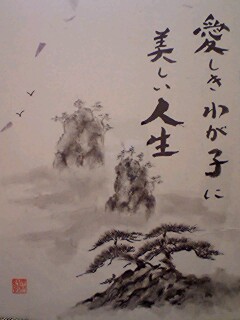 愛しきわが子に
美しい人生